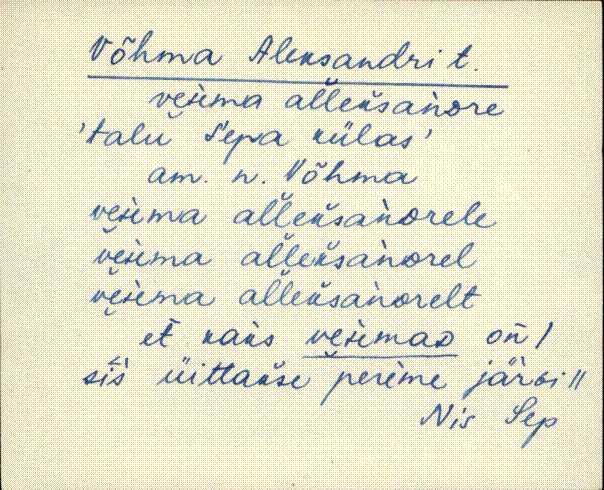 Võhma Aleksandri t.
vęi̬ma al̆l̆ek̆sànᴅre
'talu Sepa külas'
am. n. Võhma
vęi̬ma al̆l̆ek̆sànᴅrele
vęi̬ma al̆l̆ek̆sànᴅrel
vęi̬ma al̆l̆ek̆sànᴅrelt
et̆ kaks vęi̬maᴅ on̆ /
sìs üittak̆se perìme järvi //
Nis Sep